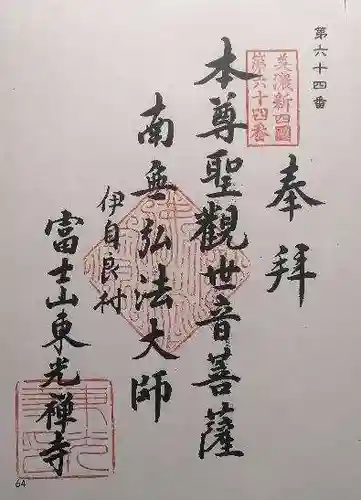 第六十四番
奉拝
美濃新四國
第六十四番
本尊聖觀世音菩薩
南無弘法大師
伊自良村
富士山東光禅寺
64